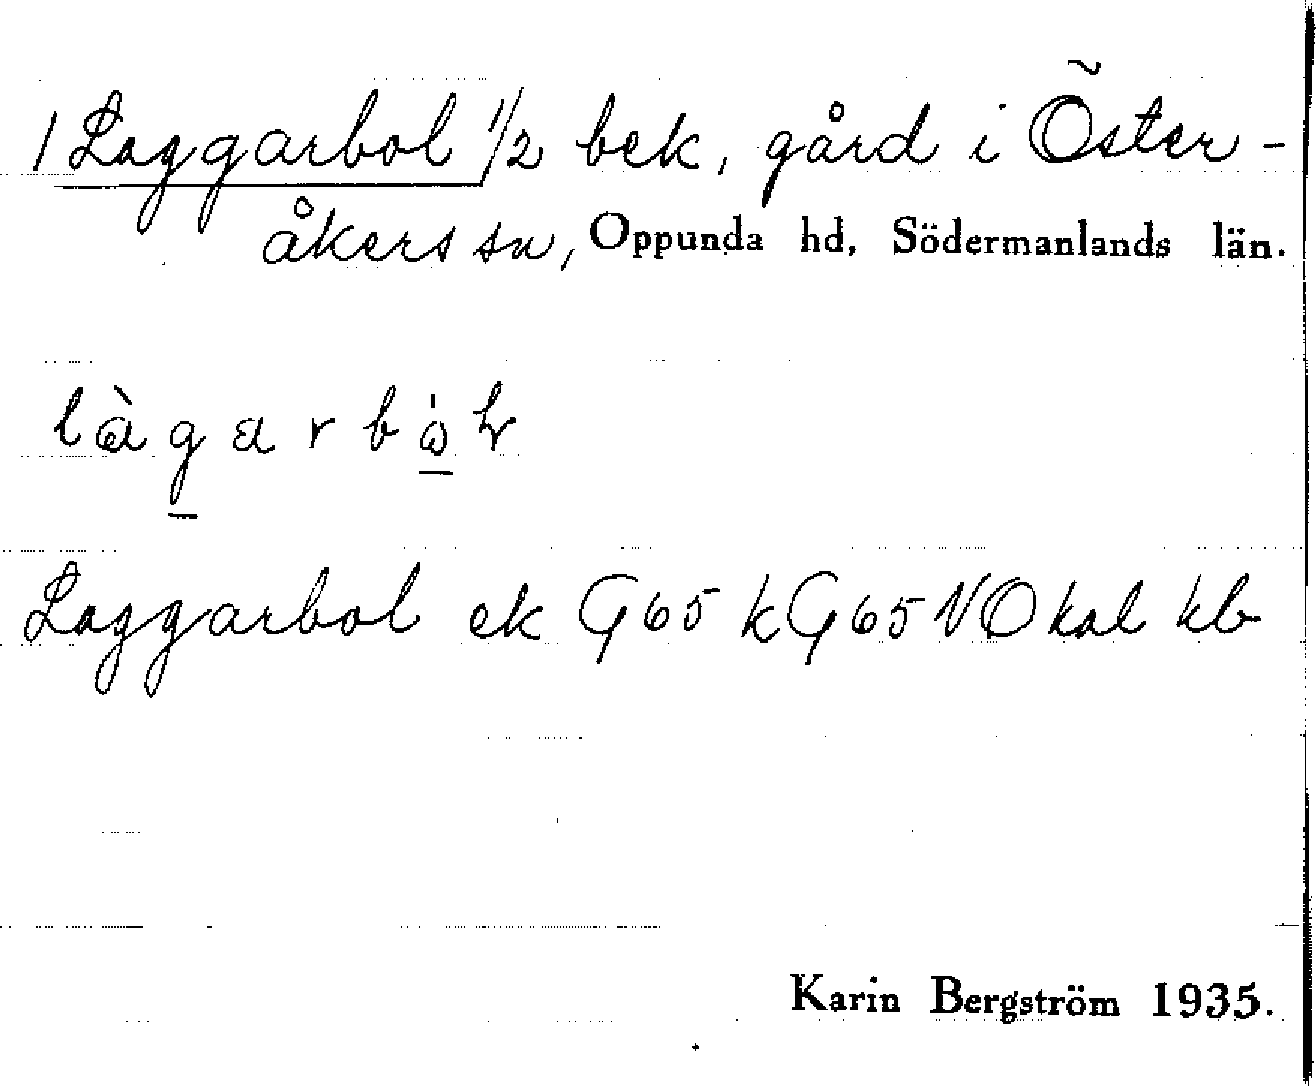 1 Laggarbol 1/2 bek, gård i Öster-
åkers sn, Oppunda hd, Södermanlands län.
làgarból
Laggarbol ek G65 kG65 NO kal kb
Karin Bergström 1935.